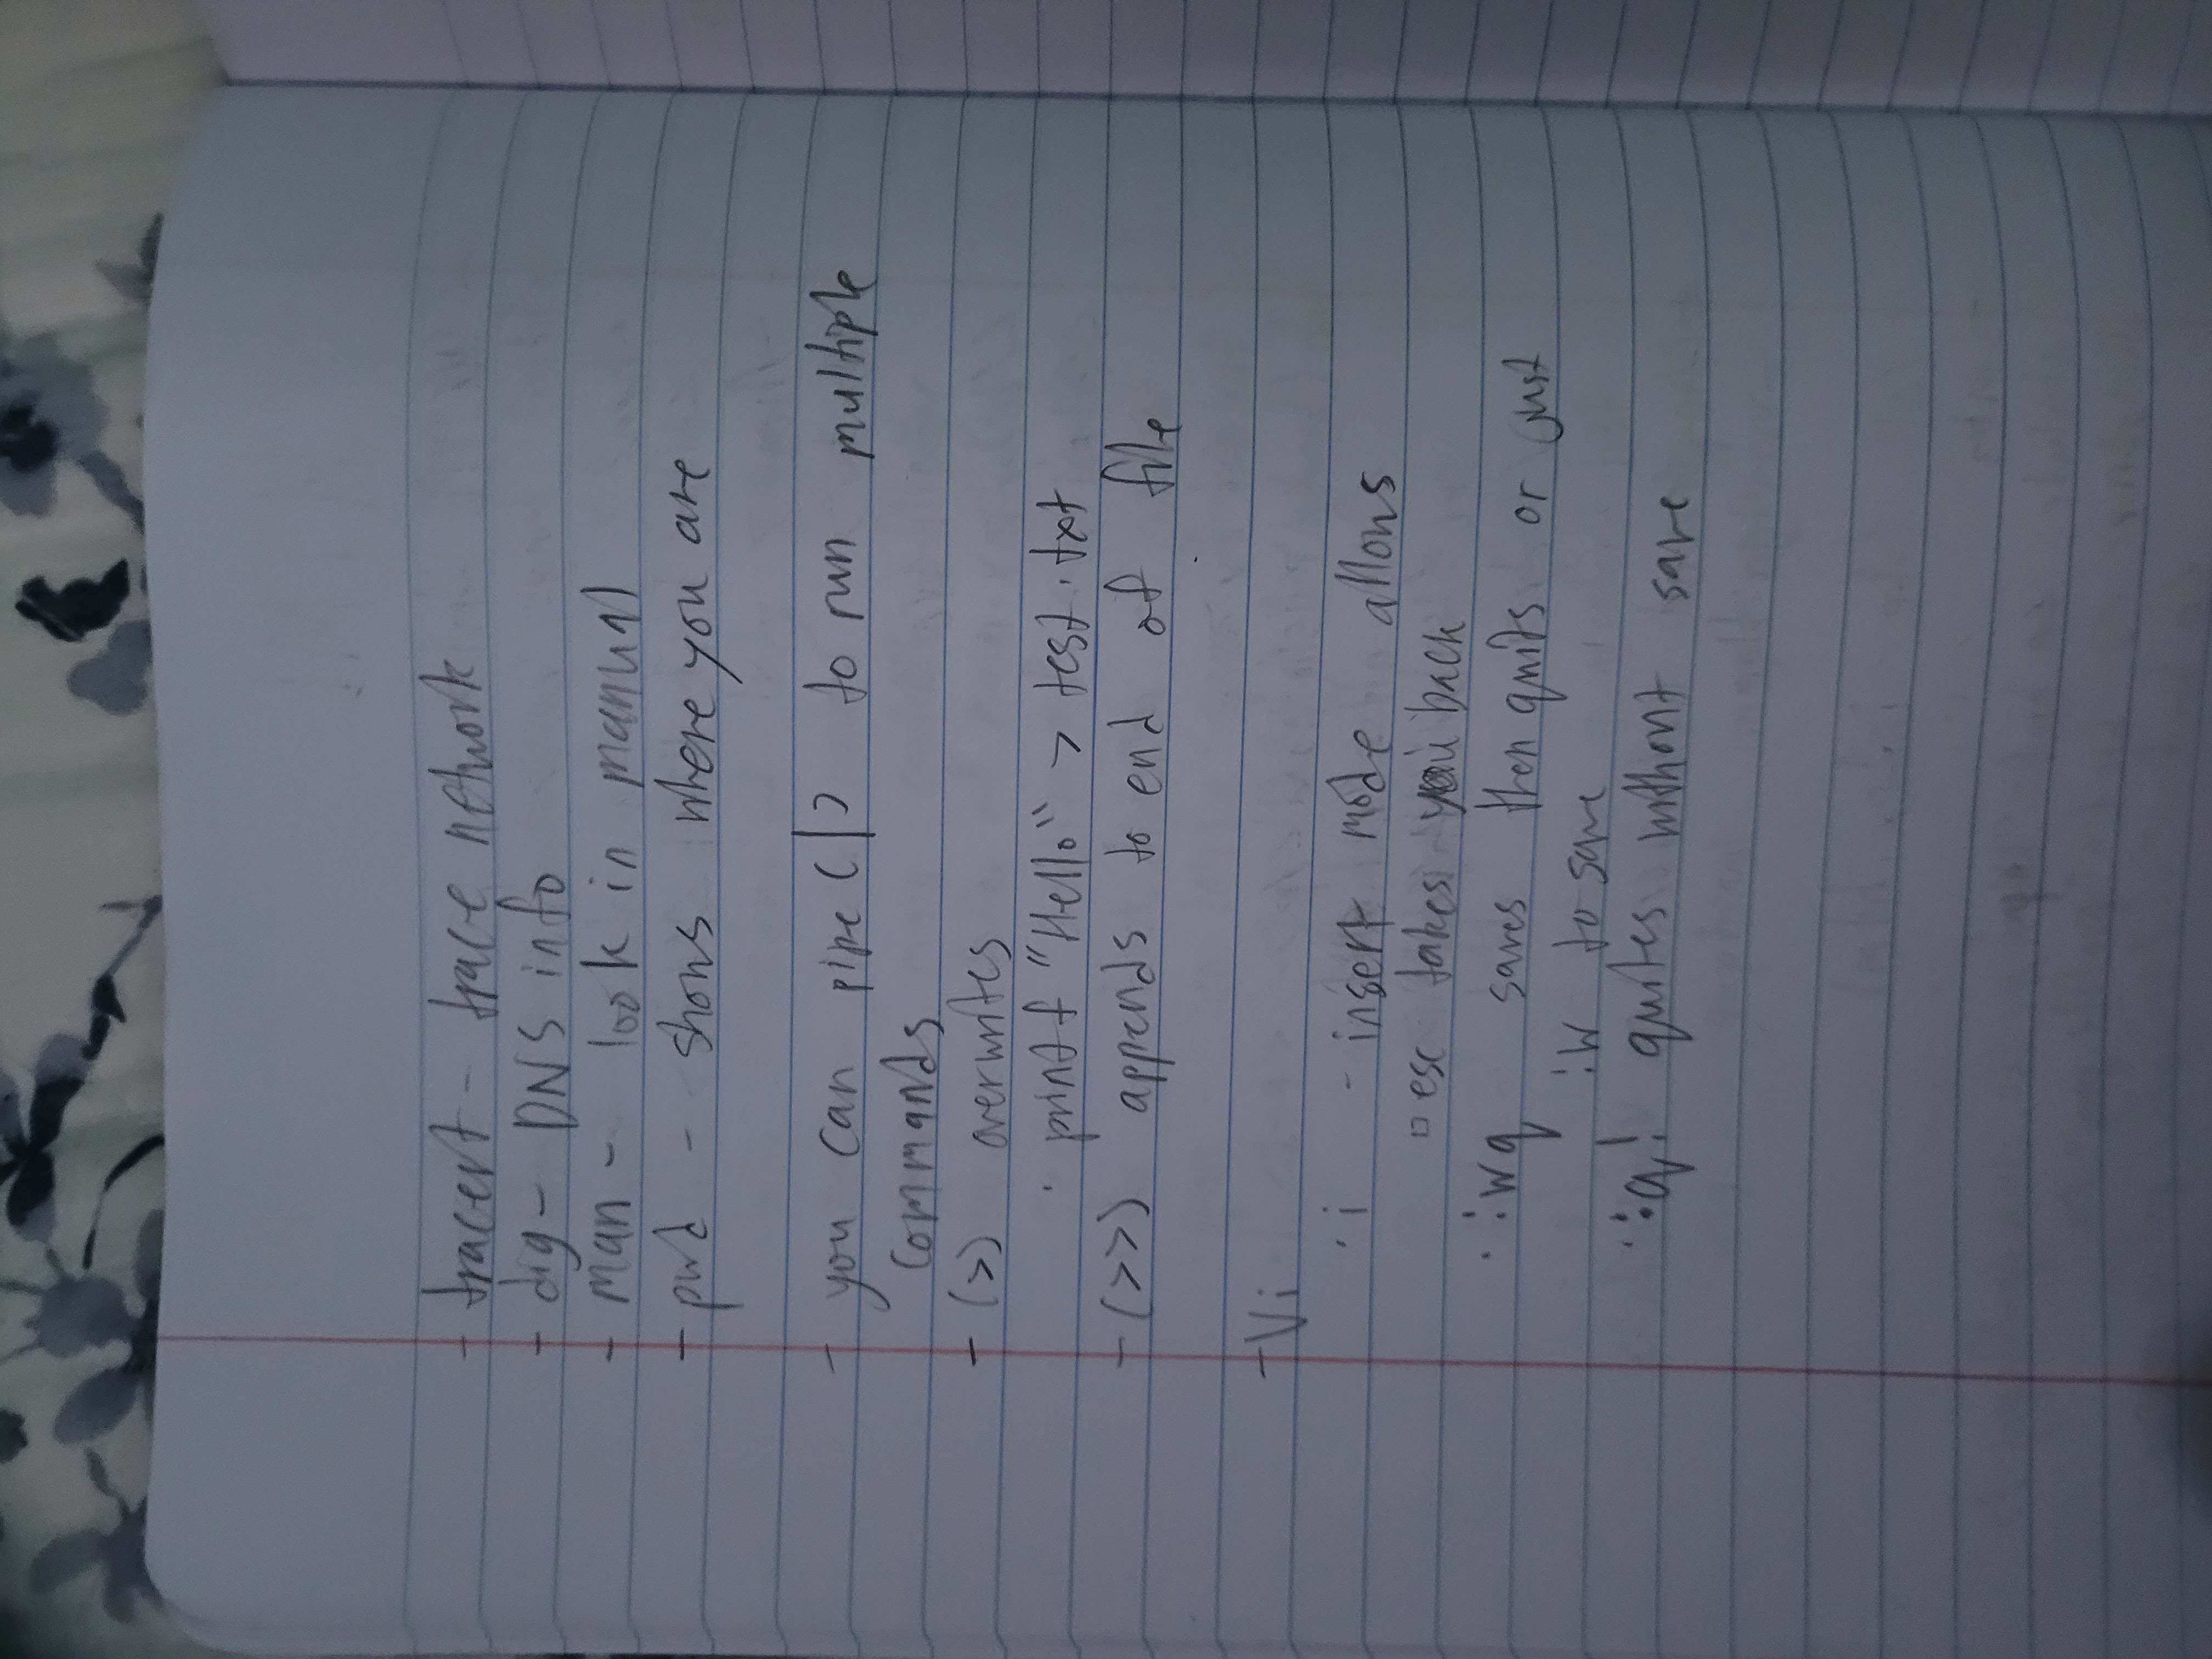 - tracert - trace network
- dig - DNS info
- man - look in manual
- pwd - shows where you are
- you can pipe (|) to run multiple
commands
- (>) overwrites
· printf "Hello" > test.txt
- (>>) appends to end of file
- Vi
· i - insert mode allows
▫ esc takes you back
· :wq saves then quits or just
:w to save
· :q! quites without save